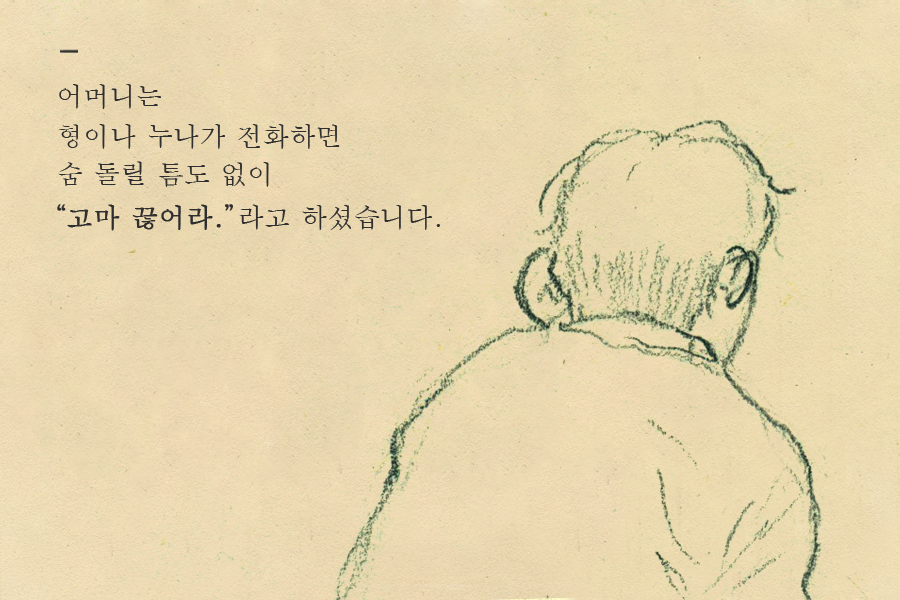 어머니는
형이나 누나가 전화하면
숨 돌릴 틈도 없이
“고마 끊어라.”라고 하셨습니다.